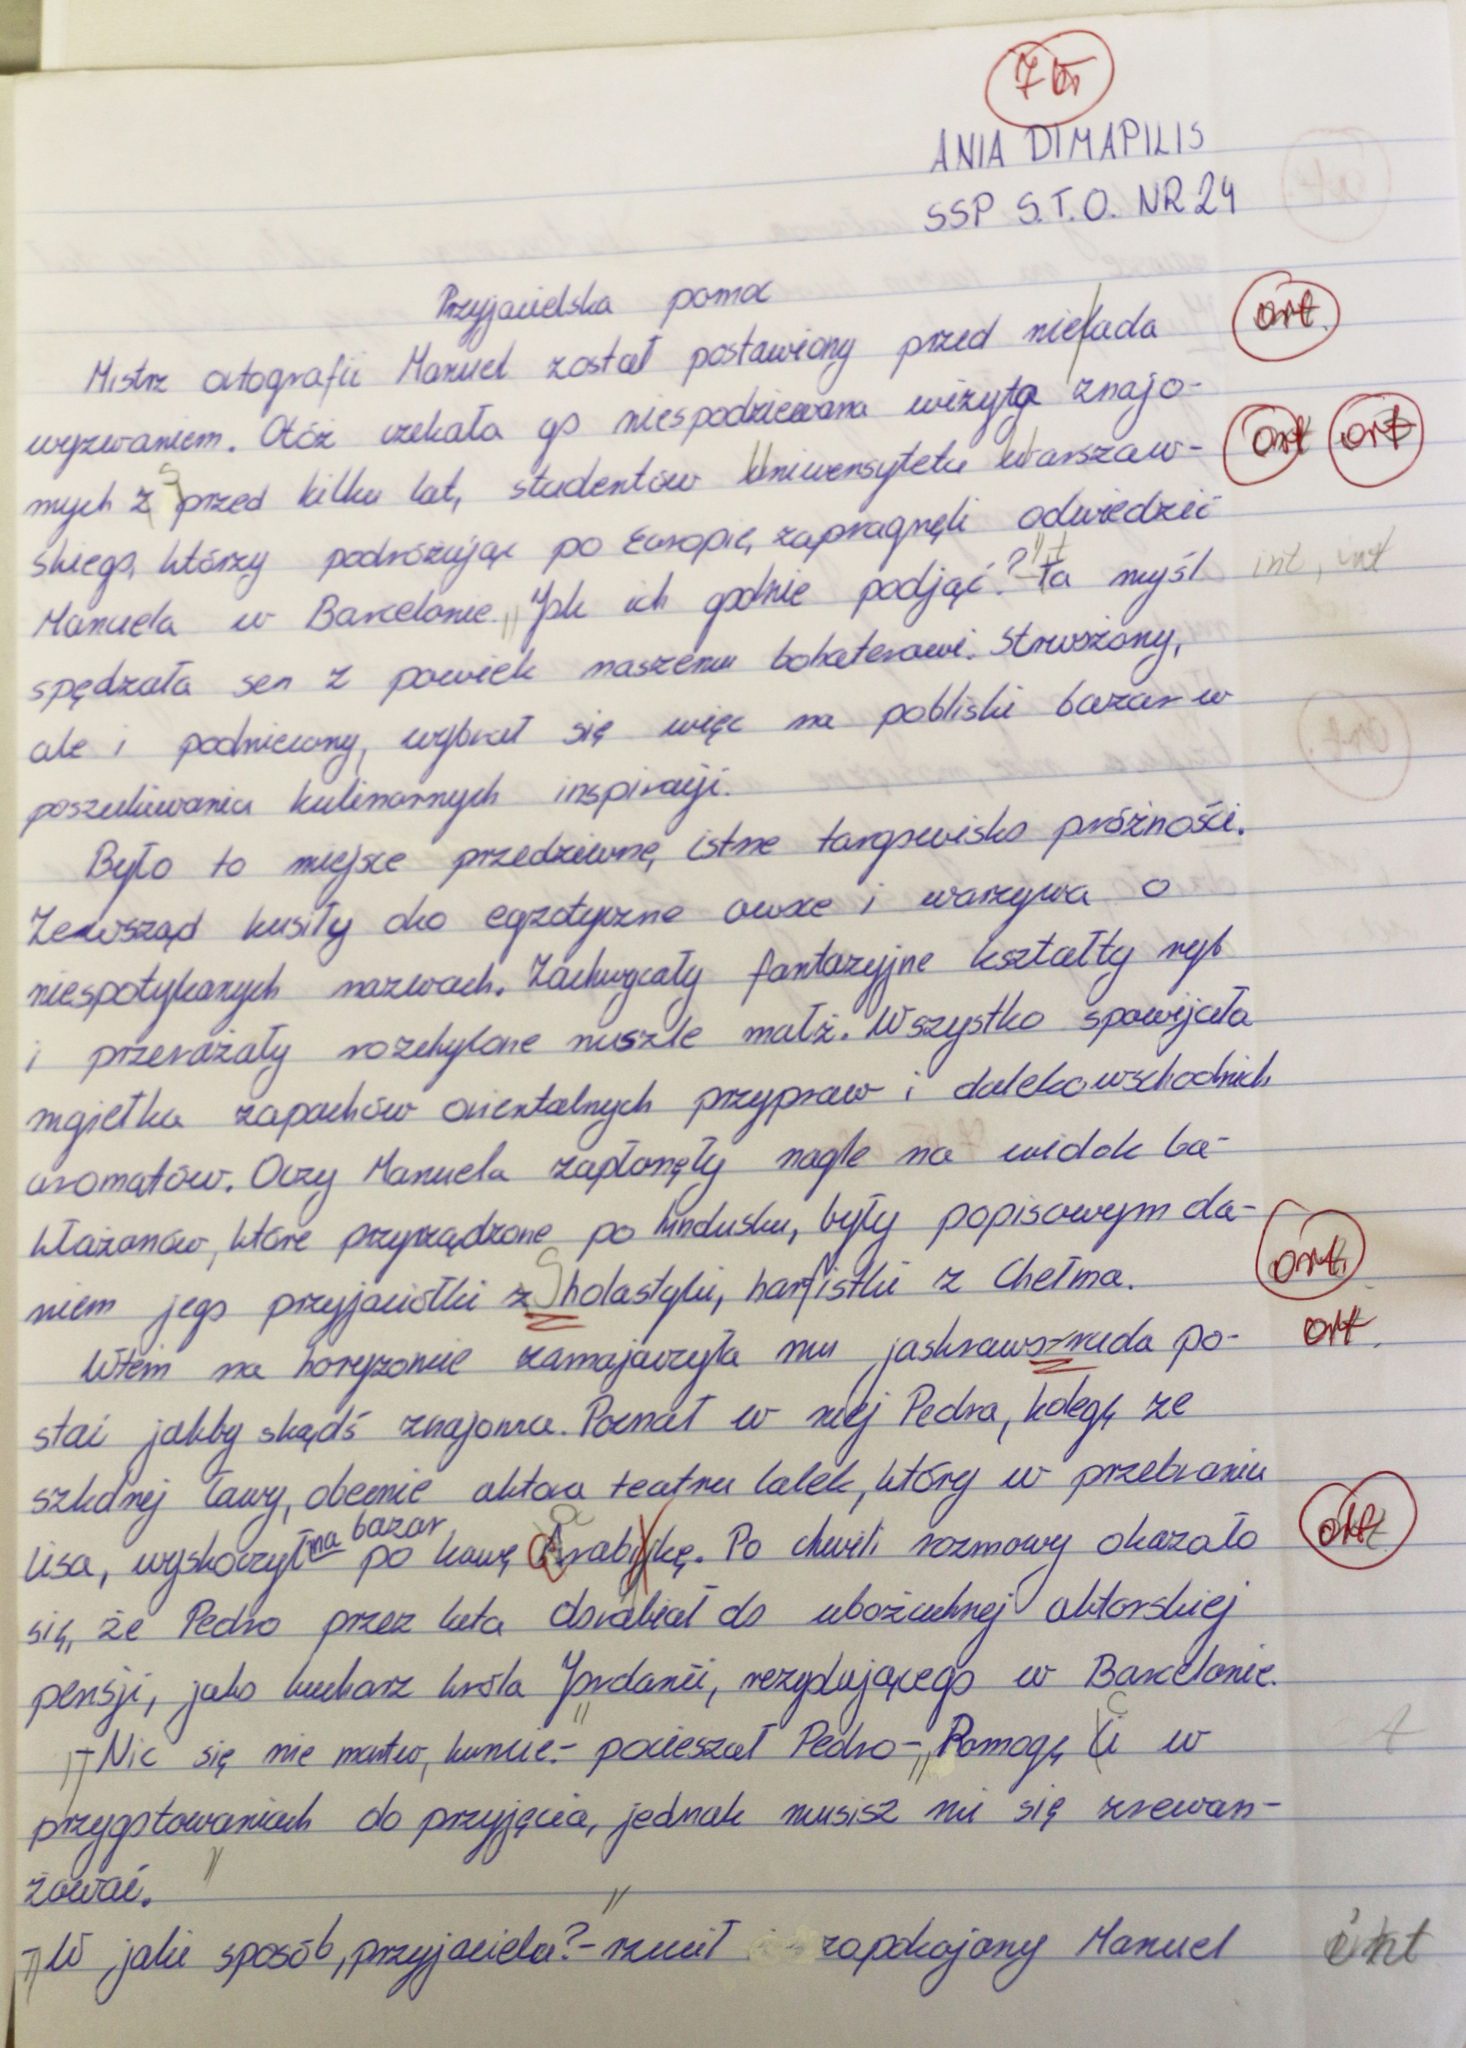 7 bł
ANIA DIMAPILIS
SSP S.T.O. NR 24
Przyjacielska pomoc
Mistrz ortografii Manuel został postawiony przed nielada ort.
wyzwaniem. Otóż czekała go niespodziewana wizyta znajo- ort ort
mych z przed kilku lat, studentów Uniwersytetu Warszaw-
skiego, którzy podróżując po Europie, zapragnęli odwiedzić
Manuela w Barcelonie. "Jak ich godnie podjąć?" Ta myśl int, int
spędzała sen z powiek naszemu bohaterowi. Strwożony,
ale i podniecony, wybrał się więc na pobliski bazar w
poszukiwaniu kulinarnych inspiracji.
Było to miejsce przedziwne, istne targowisko próżności.
Zewsząd kusiły oko egzotyczne owoce i warzywa o
niespotykanych nazwach. Zachwycały fantazyjne kształty ryb
i przerażały rozchylone muszle małż. Wszystko spowijała
mgiełka zapachów orientalnych przypraw i dalekowschodnich
aromatów. Oczy Manuela zapłonęły nagle na widok ba-
kłażanów, które przyrządzone po hindusku, były popisowym da- ort.
niem jego przyjaciółki zholastyki, harfistki z Chełma.
Wtem na horyzoncie zamajaczyła mu jaskraworuda po- ort.
stać jakby skądś znajoma. Poznał w niej Pedra, kolegę ze
szkolnej ławy, obecnie aktora teatru lalek, który w przebraniu
lisa, wyskoczył na bazar po kawę Arabikę. Po chwili rozmowy okazało ort
się, że Pedro przez lata dorabiał do ubożuchnej aktorskiej
pensji, jako kucharz króla Jordanii, rezydującego w Barcelonie.
"- Nic się nie martw, kumie."- pocieszał Pedro-"Pomogę Ci w
przygotowaniach do przyjęcia, jednak musisz mi się zrewan-
żować."
"W jaki sposób, przyjacielu?"- rzucił zapokojony Manuel int